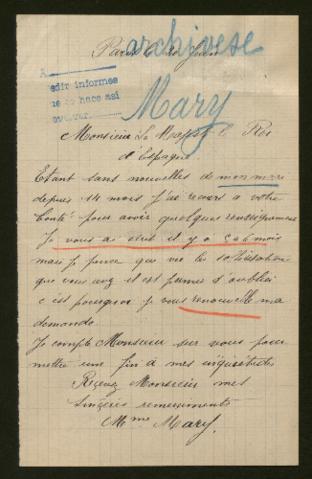 Paris le Juin
archivese
A
edir informes
ue se hace asi
Mary
Monsieur Sa Majesté le Roi
d'Espagne
Etant sans nouvelles de mon
depuis 14 mois j'ai recours a votre
bonté pour avoir quelques renseignements
Je vous ai écrit il y a 5 a 6 mois
mais je pense que vu les
que vous avez il est permis d'oublier
c'est pourquoi je vous renouvelle ma
demande
Je compte Monsieur sur vous pour
mettre une fin à mes inquiétudes
Recevez Monsieur mes
sincères remerciements
Mme Mary.